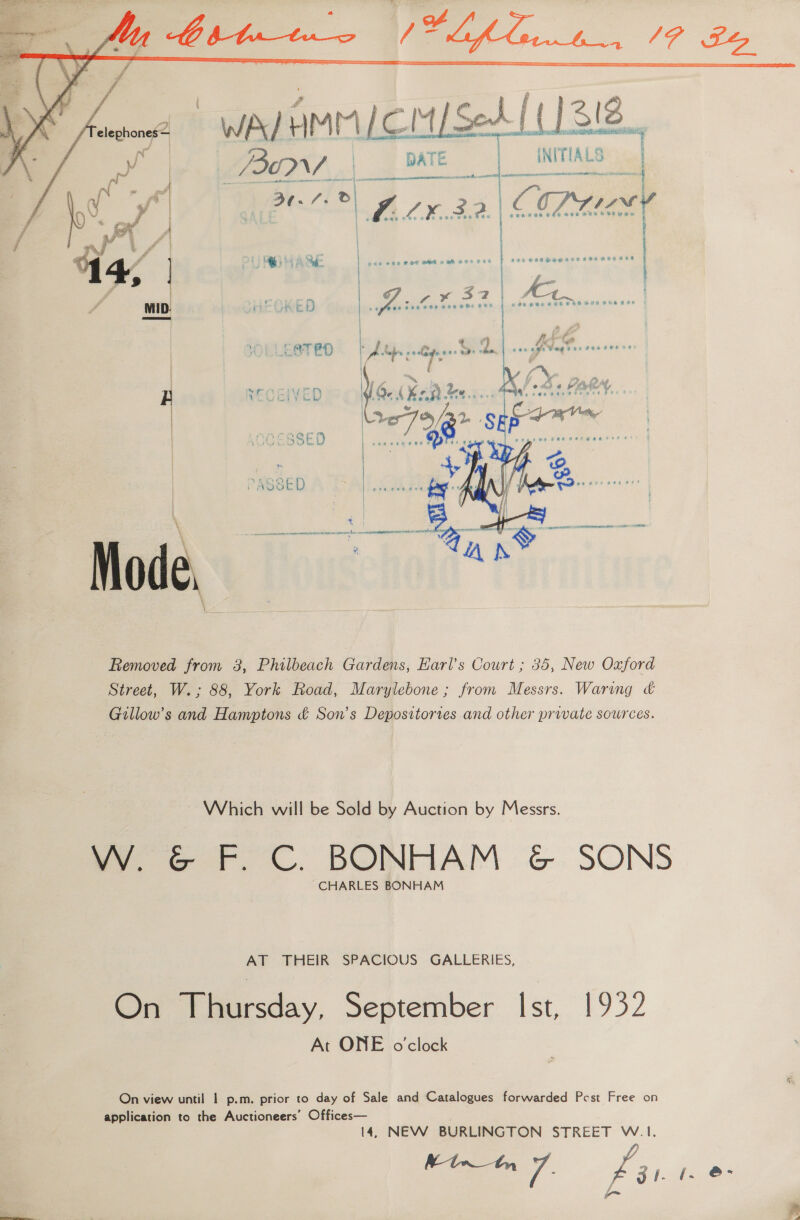 1st September 1932
Telephones—
WA/HMM/CM/Sal/1/318
BONV DATE INITIALS
SALE 31. 1. 0
PURCHASE
14,
MID. CHECKED
COLLECTED
RECEIVED
SEP
ACCESSED
1932
PASSED
Mode
Household Furniture
Removed from 3, Philbeach Gardens, Earl's Court ; 35, New Oxford
Street, W. ; 88, York Road, Marylebone ; from Messrs. Waring &
Gillow's and Hamptons & Son's Depositories and other private sources.
Which will be Sold by Auction by Messrs.
W. & F. C. BONHAM & SONS
CHARLES BONHAM
AT THEIR SPACIOUS GALLERIES,
On Thursday, September 1st, 1932
At ONE o'clock
On view until 1 p.m. prior to day of Sale and Catalogues forwarded Post Free on
application to the Auctioneers' Offices—
14, NEW BURLINGTON STREET W.1.
£31. 1. 0-